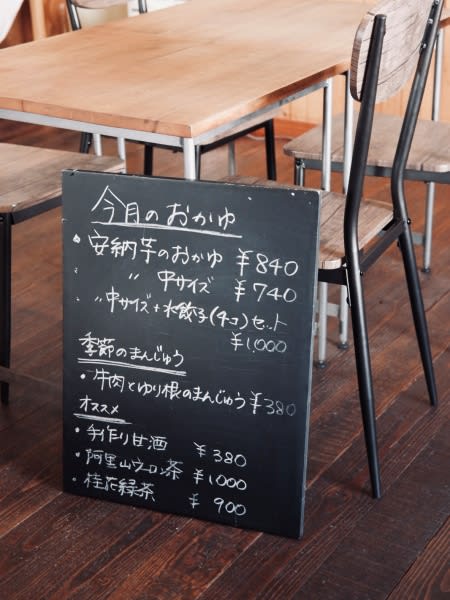 今月のおかゆ
・安納芋のおかゆ ¥840
〃 中サイズ ¥740
・〃中サイズ+水餃子(4コ)セット
¥1,000
季節のまんじゅう
・牛肉とゆり根のまんじゅう ¥380
オススメ
・手作り甘酒 ¥380
・阿里山ウーロン茶 ¥1000
・桂花緑茶 ¥900